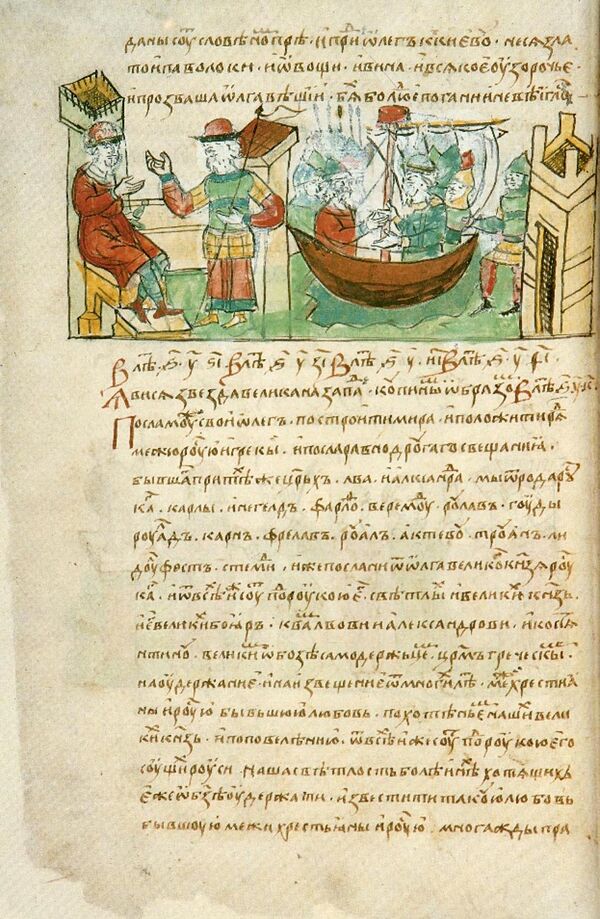 даны соуⷮ словѣномⸯ прѣ · и приⷣ ѡлегъ к киевоу · неса зла
то и паволоки · и ѡвощи · и вина · и всѧкое оузорочье ·
и прозваша ѡлга вѣщи · бѧⷯ бо люⷣе погани и невѣигло
В лѣⷮ · ҂ѕ · у · ѕі · В лѣⷮ · ҂ѕ · у · зі · В лѣⷮ · ҂ѕ · у · иі · В лѣⷮ · ҂ѕ · у · ѳі ·
Ависѧ звезда велика на запаⷣ · копииныⷨ ѡбразоⷨ · В лѣⷮ · ҂ѕ · у · к ·
Посла моуⷤ свои ѡлегъ · построити мира · и положити рѧⷣ
межю роусⷭю и грекы · и посла равно дроугаго свещаниꙗ ·
бывшаⷢ при тѣⷯ же цр҃ьхъ · лва · и алеѯаⷩдра · мы ѿ рода роуⷭ
ка · карлы · инегелдъ · фарлоⷴ · веремоуⷣ · роулавъ · гоуды
роуалдъ · карнъ · фрелавъ · роуалъ · актевоу · троуанъ · ли
доуⷧфостъ · стемиⷣ · иже послани ѿ ѡлга великоⷢ кнзѧ роуⷭ
каⷢ · и ѿ всѣⷯ иже соуⷮ поⷣ роукою еⷢ · свѣтлыⷯ и великиⷯ кнзь ·
и еⷢ великиⷯ боꙗръ · к ваⷨ лвови и александрови · и костѧ
нтиноу · великиⷨ ѡ бозѣ самодержьцеⷨ · црⷭмъ греческыⷨ ·
на оудержание · и на извещение ѿ многиⷯ лѣⷮ · межⷣ хрестиꙗ
ны и роусⷭю бывьшюю любовь · похотѣньеⷨ нашиⷯ вели
киⷯ кнзь · и по повелѣнию · ѿ всѣⷯ иже соуⷮ поⷣ роукою его
соущиⷯ роуси · наша свѣтлость болѣ инѣⷯ хотѧщихъ
еже ѡ бзѣ оудержати · и известити такоую любовь
бывшоую межи хрестьꙗны и роусⷭю · многажды пра